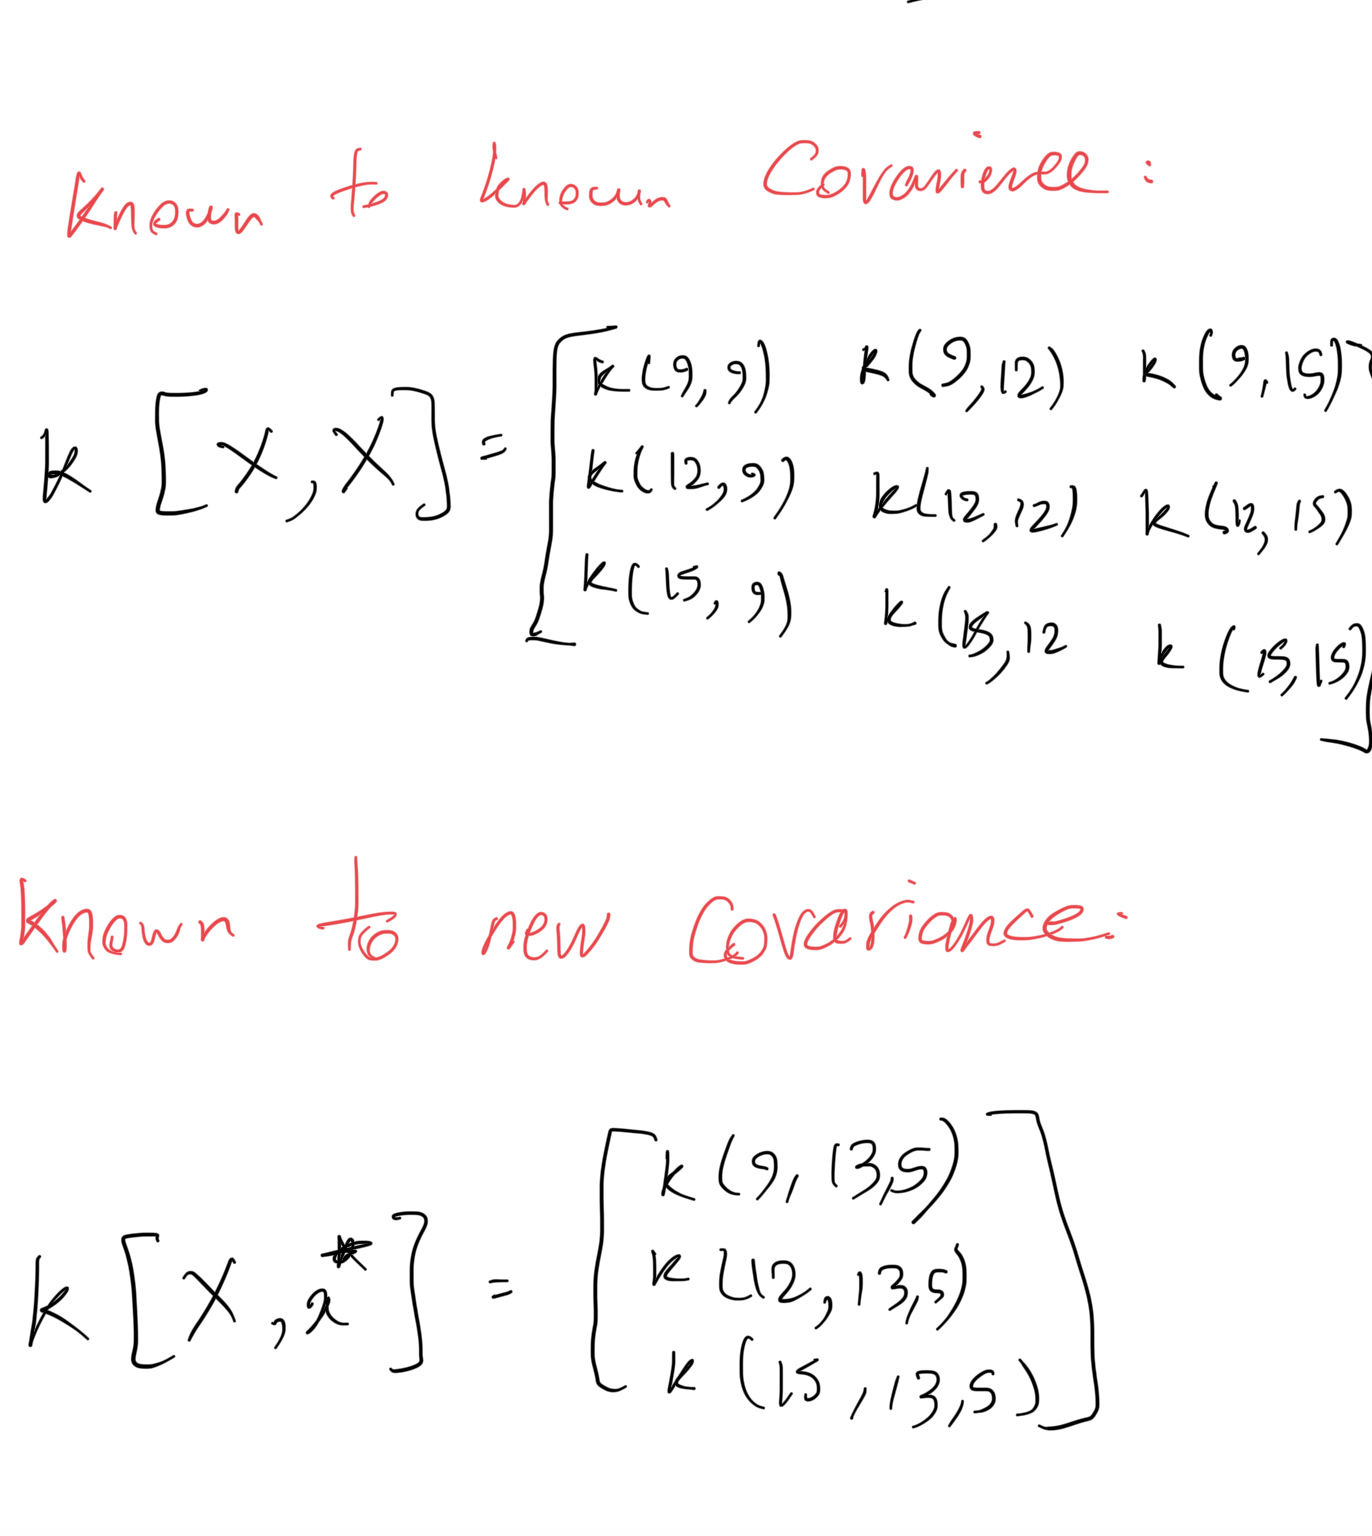 known to known Covarience:
k [X, X] = [k(9, 9) k(9, 12) k(9, 15)
k(12, 9) k(12, 12) k(12, 15)
k(15, 9) k(15, 12 k(15, 15)]
known to new Covariance:
k [X, x*] = [k(9, 13,5)
k(12, 13,5)
k(15, 13,5)]